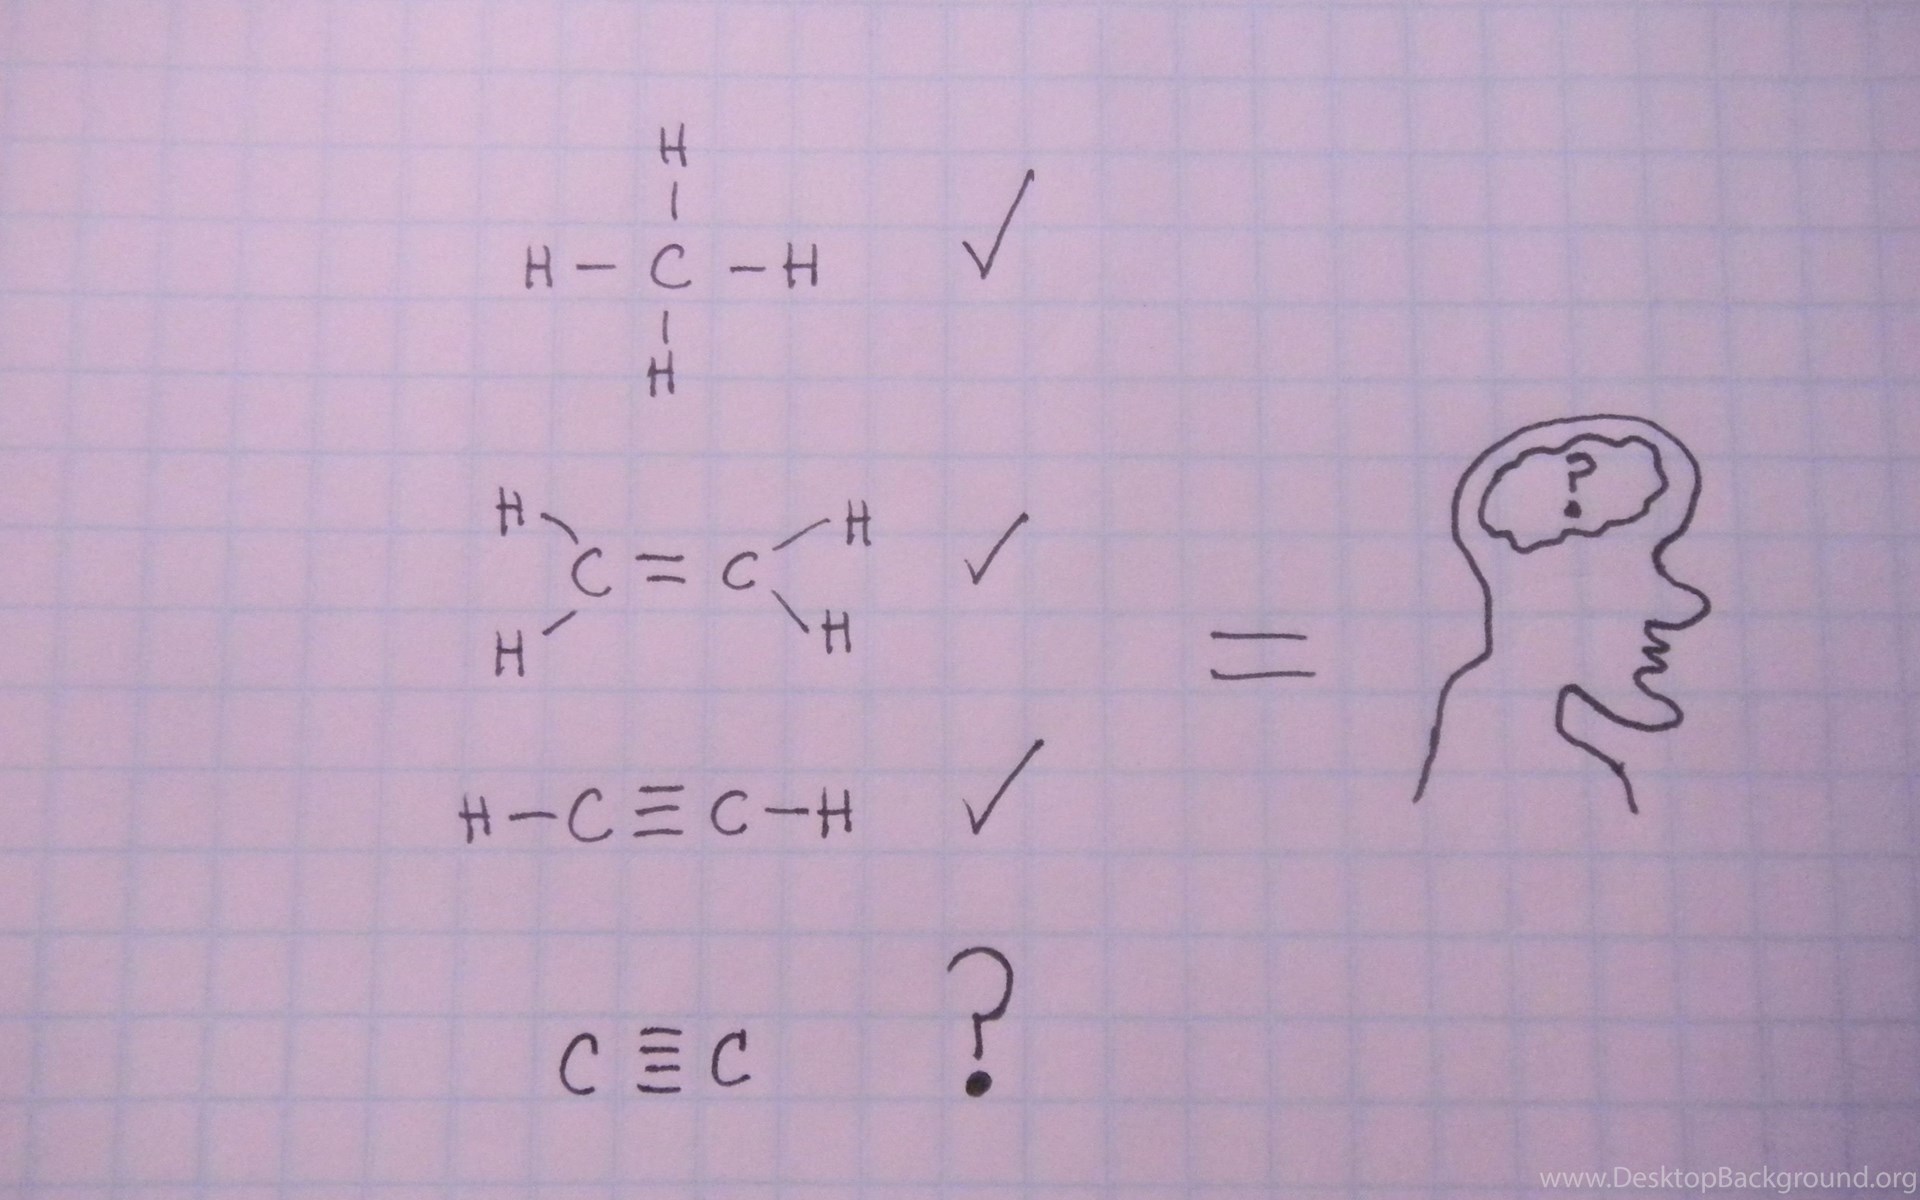 H
|
H – C – H ✓
|
H
H H
C = C ✓
H H
=
?
H – C ≡ C – H ✓
C ≣ C ?
www.DesktopBackground.org